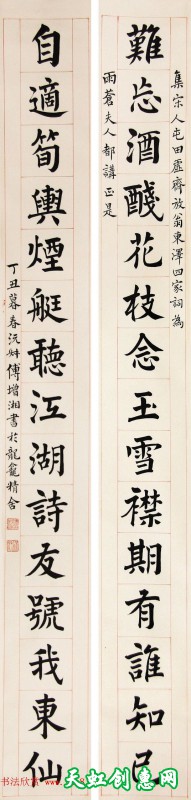 集宋人屯田虛齊放翁東澤四家詞為
難忘酒醆花枝念王雪襟期有誰知己
雨蒼夫人都講正是
自適筍輿煙艇聽江湖詩友號我東仙
丁丑暮春沅叔傅增湘書於龍龕精舍
书法欣赏
天虹创惠网